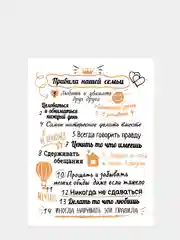 Правила нашей семьи
1 Любить и уважать
друг друга
Целоваться
и обниматься
каждый день
4 Самое интересное делать вместе
5 Всегда говорить правду
7 Ценить то что имеешь
8 Сдерживать
обещания
10 Прощать и забывать
мелкие обиды даже если тяжело
12 Никогда не сдаваться
13 Делать то что любишь
14 Иногда нарушать эти правила